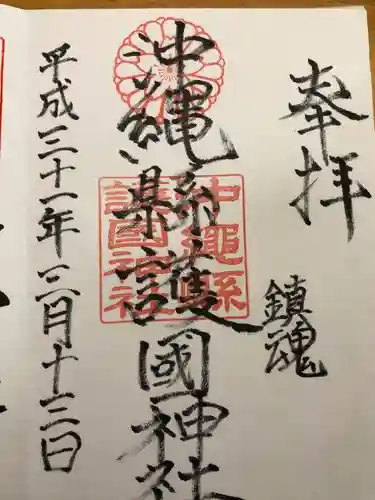 奉拝
鎮魂
沖縄縣護國神社
沖繩縣護國神社
平成三十一年三月十三日